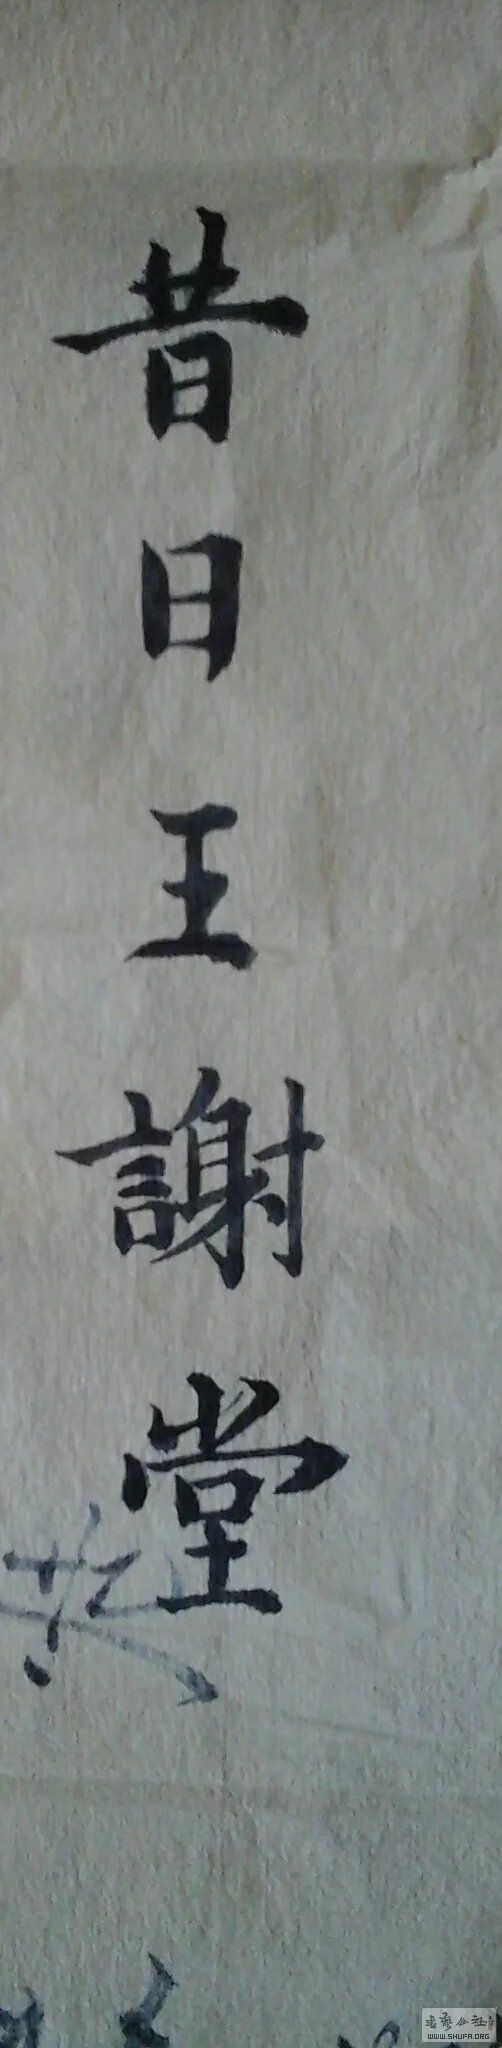 昔日王謝堂
書藝公社
WWW.SHUFA.ORG